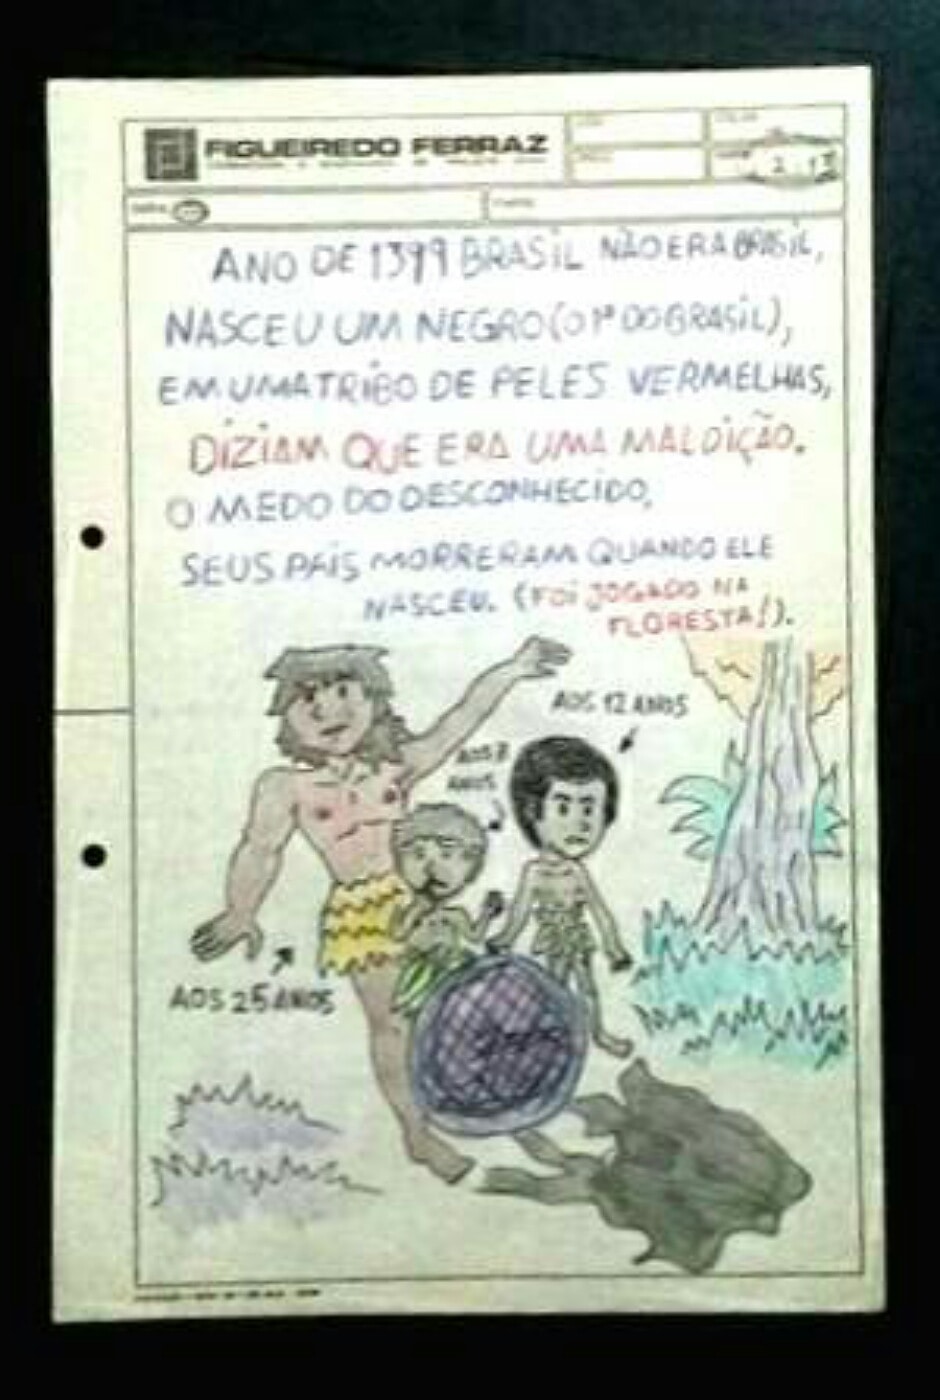 FIGUEIREDO FERRAZ
2.13
ANO DE 1399 BRASIL NÃO ERA BRASIL,
NASCEU UM NEGRO (O 1º DO BRASIL),
EM UMA TRIBO DE PELES VERMELHAS,
DIZIAM QUE ERA UMA MALDIÇÃO.
O MEDO DO DESCONHECIDO,
SEUS PAIS MORRERAM QUANDO ELE
NASCEU. (FOI JOGADO NA
FLORESTA!).
AOS 12 ANOS
AOS
ANOS
AOS 25 ANOS